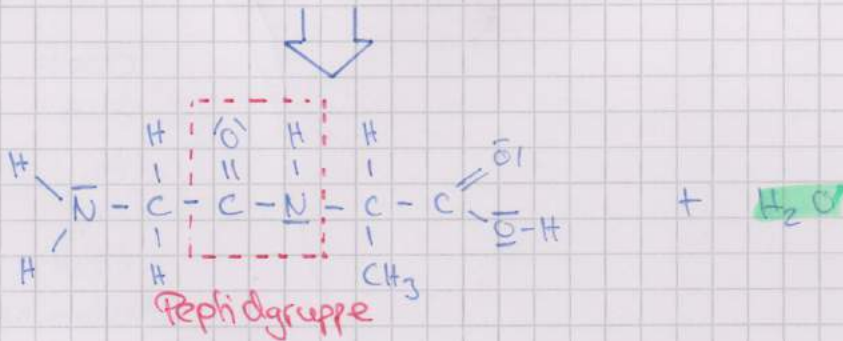 H H O H H O
H N - C - C - N - C - C O - H + H₂O
H H CH₃
Peptidgruppe